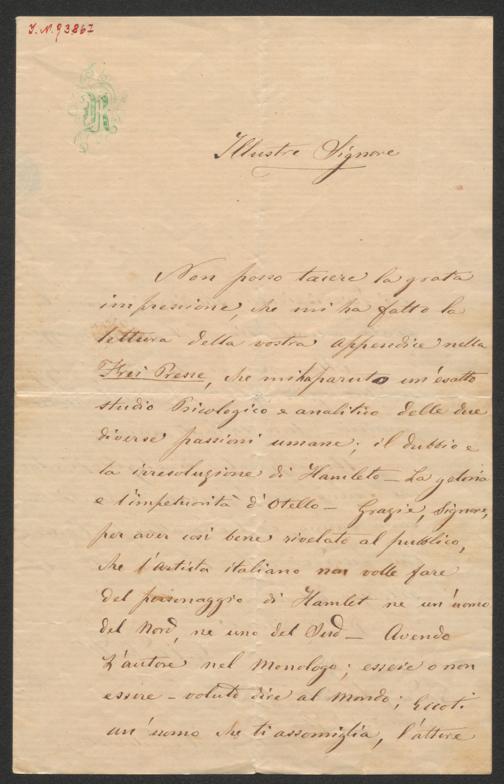 I.N. 93867
R
Illustre Signore
Non posso tacere la grata
impressione, che mi ha fatto la
lettura della vostra Appendice nella
Frei Presse, che mi ha paruto un'esatto
studio Psicologico e analitico delle due
diverse passioni umane; il dubbio e
la irresoluzione di Hamleto – La gelosia
e l'impetuosità d'Otello – Grazie, Signore,
per aver così bene rivelato al pubblico,
che l'Artista italiano non volle fare
del personaggio di Hamlet ne un'uomo
del Nord, ne uno del Sud – Avendo
L'autore nel Monologo; essere o non
essere – voluto dire al Mondo; Eccoti
un'uomo che ti assomiglia, l'attore